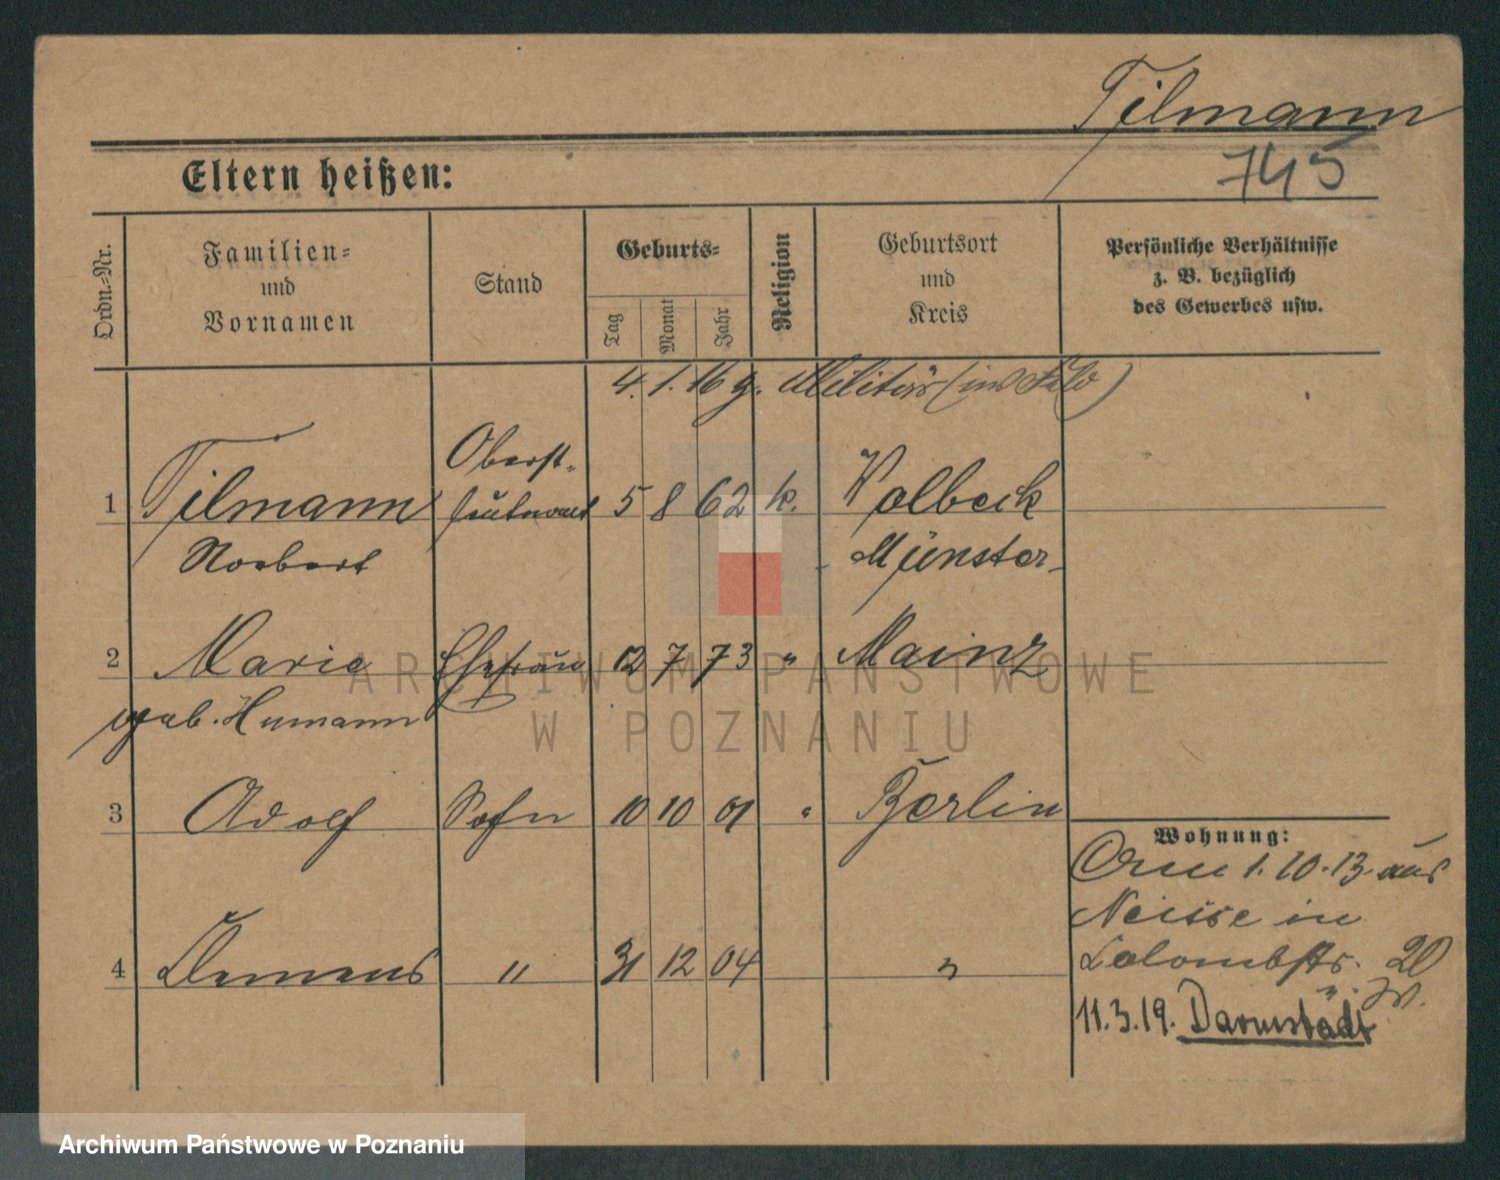 Tilmann
745
Eltern heißen:
Ordn.-Nr.
Familien-
und
Vornamen
Stand
Geburts-
Tag
Monat
Jahr
Religion
Geburtsort
und
Kreis
Persönliche Verhältnisse
z. B. bezüglich
des Gewerbes usw.
4. 1. 16 z. Militär (ins Feld)
1 Tilmann Oberst-leutnant 5 8 62 k. Wolbeck
Norbert Münster
2 Marie Ehefrau 12 7 73 " Mainz
geb. Humann
3 Adolf Sohn 10 10 01 " Berlin
4 Clemens " 31 12 04 "
Wohnung:
1.10.13. aus
Neisse in
Colombstr. 20
11.3.19. Darmstadt
ARCHIWUM PAŃSTWOWE
W POZNANIU
Archiwum Państwowe w Poznaniu